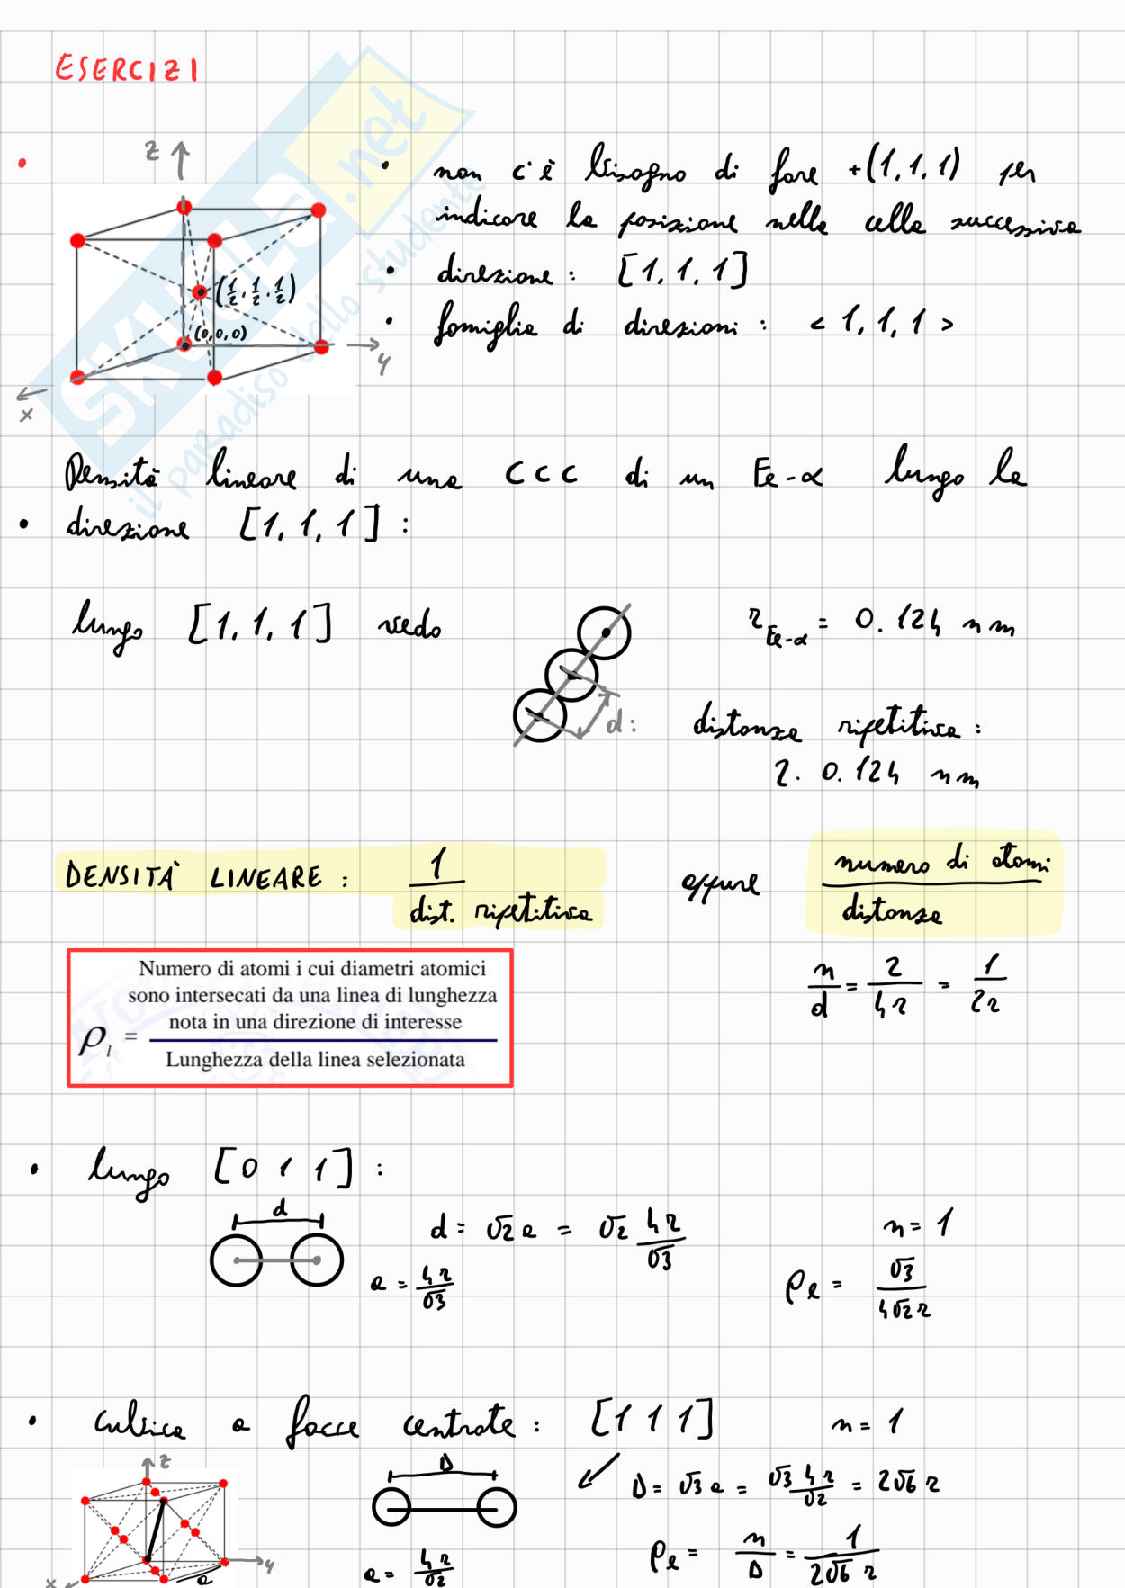 ESERCIZI
z
• non c'è bisogno di fare +(1,1,1) per
indicare la posizione nella cella successiva
• direzione : [1,1,1]
• famiglia di direzioni : <1,1,1>
(1/2, 1/2, 1/2)
(0,0,0)
y
x
SKUOLA.net
il paradiso dello studente
Densità lineare di una CCC di un Fe-α lungo la
• direzione [1,1,1] :
lungo [1,1,1] vedo
r Fe-α = 0.124 nm
d:
distanza ripetitiva :
2 · 0.124 nm
DENSITÀ LINEARE : 1 / dist. ripetitiva oppure numero di atomi / distanza
ρl = Numero di atomi i cui diametri atomici
sono intersecati da una linea di lunghezza
nota in una direzione di interesse
Lunghezza della linea selezionata
n/d = 2/4r = 1/2r
• lungo [0 1 1] :
d
d = √2 a = √2 4r/√3
n = 1
a = 4r/√3
ρl = √3/4√2 r
• cubica a facce centrate : [1 1 1] n = 1
z
D
D = √3 a = √3 4r/√2 = 2√6 r
y
x
a
a = 4r/√2
ρl = n/D = 1/2√6 r